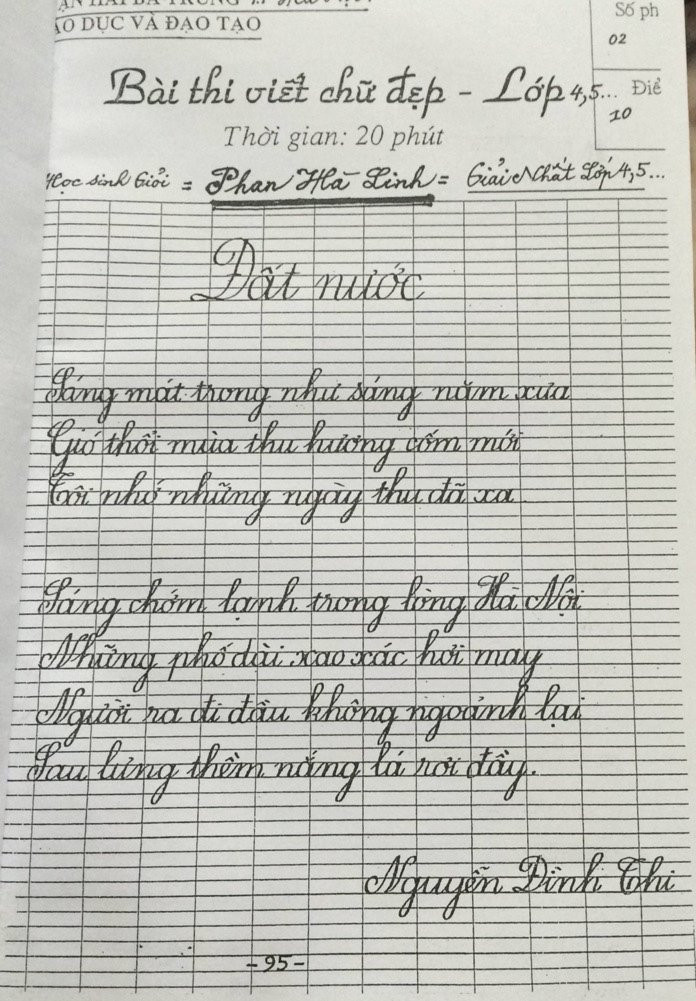 ẬN HAI BÀ TRƯNG
ÁO DỤC VÀ ĐẠO TẠO
Số ph
02
Bài thi viết chữ đẹp - Lớp 4,5...
Điể
10
Thời gian: 20 phút
Học sinh Giỏi = Phan Hà Linh = Giải Nhất Lớp 4,5...
Đất nước
Sáng mát trong như sáng năm xưa
Gió thổi mùa thu hương cốm mới
Tôi nhớ những ngày thu đã xa
Sáng chớm lạnh trong lòng Hà Nội
Những phố dài xao xác hơi may
Người ra đi đầu không ngoảnh lại
Sau lưng thềm nắng lá rơi đầy.
Nguyễn Đình Thi
- 95 -